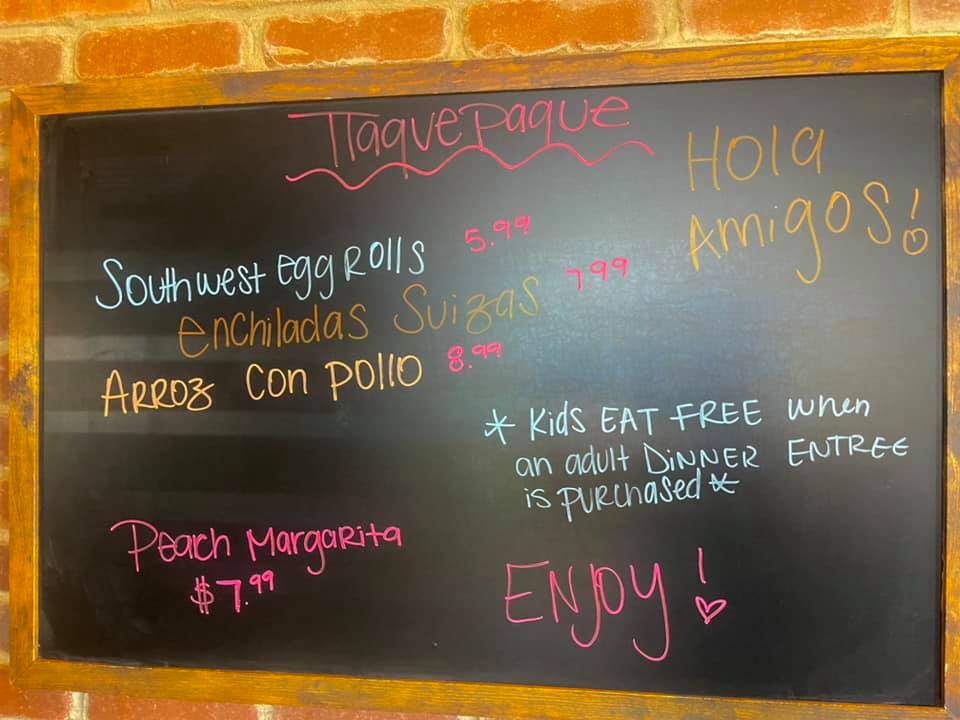 Tlaquepaque
Hola
Amigos!
Southwest eggrolls 5.99
enchiladas Suizas 7.99
Arroz con pollo 8.99
* Kids EAT FREE when
an adult DINNER ENTREE
is purchased *
Peach Margarita
$7.99
ENJOY!